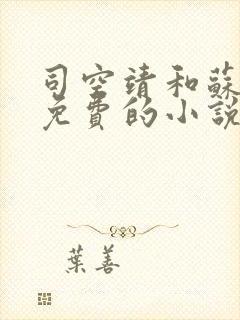 司空靖和蘇
免費的小說
葉善